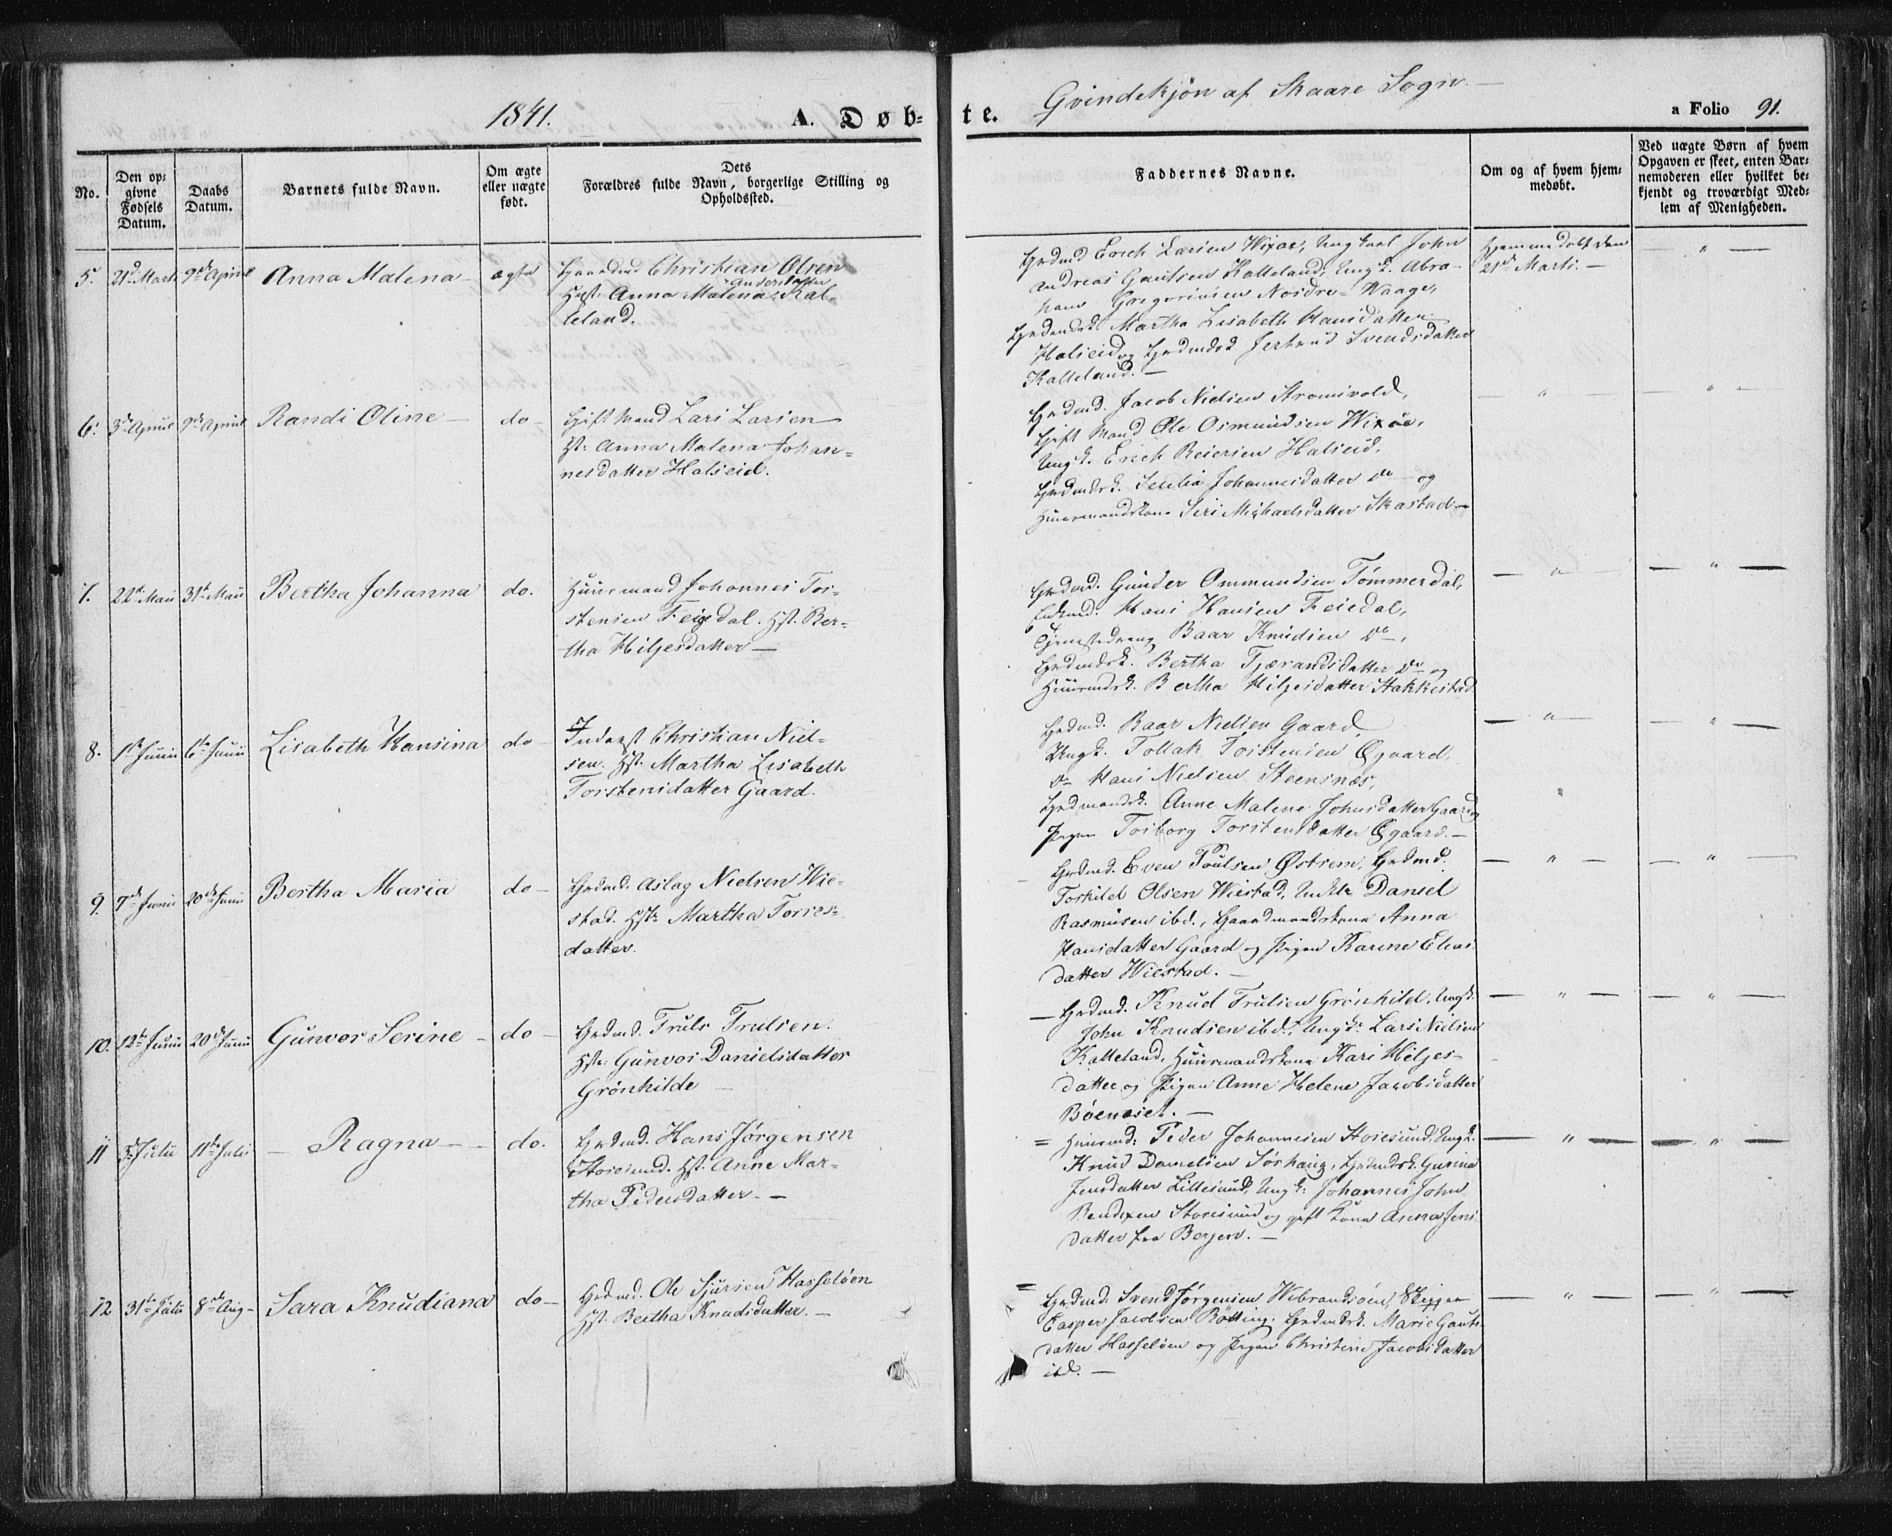 1841.
A. Døb-
te.
Qvindekjøn af Skaare Sogn.—
a Folio 91.
No.
Den op-
givne
Fødsels
Datum.
Daabs
Datum.
Barnets fulde Navn.
Om ægte
eller uægte
født.
Dets
Forældres fulde Navn, borgerlige Stilling og
Opholdssted.
Faddernes Navne.
Om og af hvem hjem-
medøbt.
Ved uægte Børn af hvem
Opgaven er skeet, enten Bar-
nemoderen eller hvilket be-
kjendt og troværdigt Med-
lem af Menigheden.
5.
21d Marti
9de April
Anna Malena
ægte
Gaardmd Christian Olsen
Hst. Anna Malena Anders datter Kal-
leland.
Grdmd Erich Larsen Wixøe, Ungkarl John
Andreas Gautsen Kalleland, Ungk. Abra-
ham Gregoriusen Nordre-Waage,
Grdmdsk. Martha Lisabeth Hansdatter
Halseid og Grdmdsk Jertrud Svendsdatter
Kalleland.—
Hjemmedøbt den
21de Marti.—
— " —
6.
3de April
9de April
Randi Oline
do
Gift Mand Lars Larsen
Hst. Anna Malena Johan-
nesdatter Halseid.
Grdmd. Jacob Nielsen Stromsvold,
Gift Mand Ole Osmundsen Wixøe,
Ungk. Erich Reiersen Halseid,
Grdmdsk. Sesilia Johannesdatter do og
Huusmandskone Siri Michaelsdatter Skastad—
— " —
— " —
7.
22de Maii
31te Maii
Bertha Johanna
do.
Huusmand Johannes Tor-
stensen Feigedal. Hst. Ber-
tha Hiljesdatter—
Grdmd. Gunder Ommundsen Tømmerdal,
Enkmd. Hans Hansen Feiedal,
Tjenestedreng Baar Knudsen do,
Grdmdsk. Bertha Tjærandsdatter do og
Huusmdsk. Bertha Hiljesdatter Stakkestad
— " —
— " —
8.
1te Junii
6te Junii
Lisabeth Hansina
do
Inderst Christian Niel-
sen. Hst. Martha Lisabeth
Torstensdatter Gaard.
Grdmd. Baar Nielsen Gaard
Ungk. Tollak Torstensen Øgaard,
do Hans Nielsen Steensnæs,
Grdmandsk. Anne Malene Johnsdatter Gaard og
Pigen Torborg Torstensdatter Øgaard.—
— " —
— " —
9.
7de Junii
20de Junii
Bertha Maria
do
Grdmd. Aslag Nielsen Wie-
stad. Hst. Martha Torres-
datter.
Grdmd. Even Poulsen Østrem, Grdmd.
Torkild Olsen Wiestad, Daniel
Rasmusen ibd., Gaardmandskone Anna
Hansdatter Gaard og Pigen Karine Elias
datter Wiestad.—
— " —
— " —
10.
12te Junii
20de Junii
Gunvor Serine
do
Grdmd. Truls Trulsen.
Hst. Gunvor Danielsdatter
Grönhilde—
Grdmd. Knud Trulsen Grönhild, Ungk.
John Knudsen ibd., Ungk. Lars Nielsen
Kalleland, Huusmandskone Kari Hiljes-
datter og Pigen Anne Helene Jacobsdatter
Böenæset.—
— " —
— " —
11
Julii
11te Julii
Ragna
do.
Grdmd. Hans Jørgensen
Storesund. Hst. Anne Mar-
tha Pedersdatter.—
Huusmd: Peder Johannesen Storesund, Ungk.
Knud Danielsen Sørhaug, Grdmdsk. Gurina
Jensdatter Lillesund, Ungk. Johannes John
Bendixen Storesund og gift Kone Anna Jens
datter fra Bergen.—
— " —
— " —
12
31te Julii
8de Aug
Sara Knudiana
do
Grdmd. Ole Sjursen Hasseløen
Hst. Bertha Knudsdatter.—
Grdmd. Svend Jørgensen Wibrandsøen, Skipper
Casper Jacobsen Rötting. Grdmdsk. Marie Gauts
datter Hasseløen og Pigen Christine Jacobsdatter
ibd.—
— " —
— " —